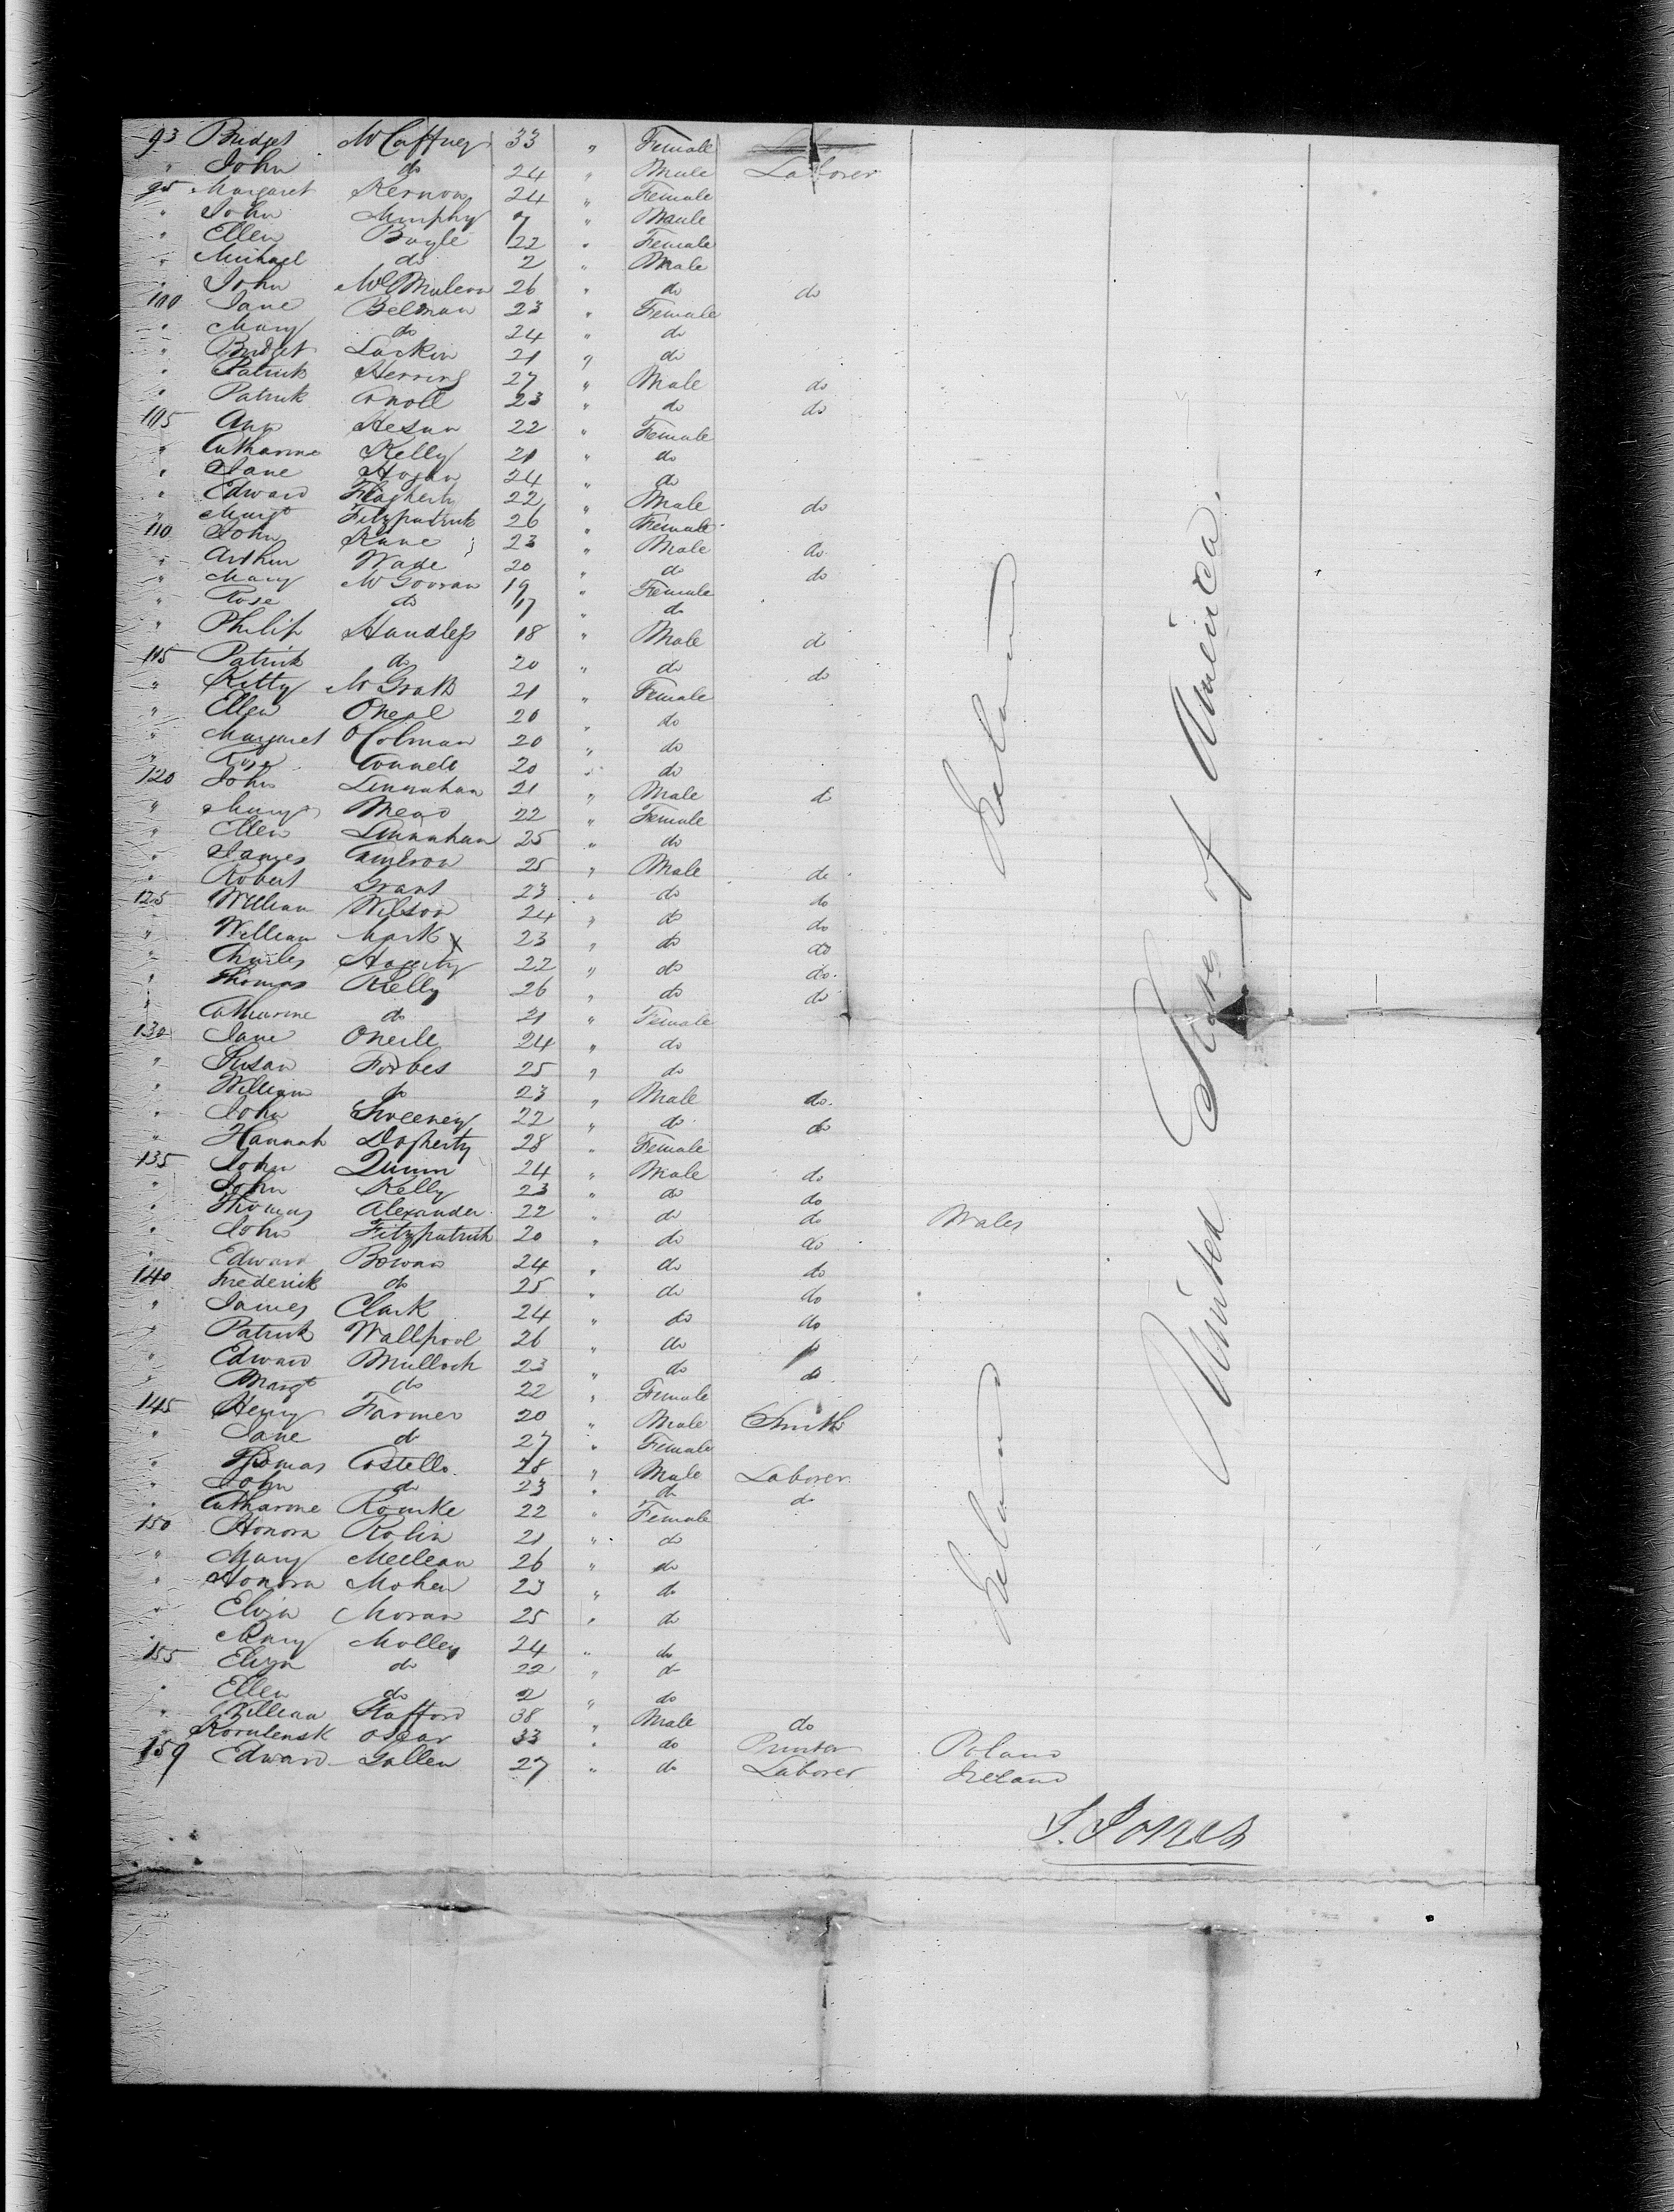 93 Bridget McCaffney 33 " Female
" John do 24 " Male Laborer
95 Margaret Kernon 24 " Female
" John Murphy 7 " Maule
" Ellen Boyle 22 " Female
" Michael do 2 " Male
" John McMulern 26 " do do
100 Jane Belman 23 " Female
" Mary do 24 " do
" Bridget Larkin 21 " do
" Patrick Herring 27 " Male do
" Patrick 23 " do do
105 Ann 22 " Female
" Catharine Kelly 21 " do
" Jane Hogan 24 " do
" Edward Flagherty 22 " Male do
" Margt Fitzpatrick 26 " Female
110 John Kane 23 " Male do
" Arthur Wade 20 " do do
" Mary McGovran 19 " Female
" Rose do 17 " do
" Philip Handless 18 " Male do
115 Patrick do 20 " do do
" Kitty McGrath 21 " Female
" Ellen Oneal 20 " do
" Margaret Holman 20 " do
" Rose Connell 20 " do
120 John Linnahan 21 " Male do
" Mary Mead 22 " Female
" Ellen Linnahan 25 " do
" James Cameron 25 " Male do
" Robert Grant 23 " do do
125 William Wilson 24 " do do
" William Mark x 23 " do do
" Charles Hagerty 22 " do do
" Thomas Kelly 26 " do do
" Catharine do 21 " Female
130 Jane Oneill 24 " do
" Susan Forbes 25 " do
" William do 23 " Male do
" John Sweeney 22 " do do
" Hannah Dogherty 28 " Female
135 John Quinn 24 " Male do
" John Kelly 23 " do do
" Thomas Alexander 22 " do do Wales
" John Fitzpatrick 20 " do do
" Edward Bowan 24 " do do
140 Frederick do 25 " do do
" James Clark 24 " do do
" Patrick Wallpool 26 " do do
" Edward Mulloch 23 " do do
" Margt do 22 " Female
145 Henry Farmer 20 " Male Smith
" Jane do 27 " Female
" Thomas Costello 28 " Male Laborer
" John do 23 " do do
" Catharine Rourke 22 " Female
150 Honora Rolin 21 " do
" Mary Meclean 26 " do
" Honora Mohen 23 " do
" Eliza Moran 25 " do
" Mary Molley 24 " do
155 Eliza do 22 " do
" Ellen do 2 " do
" William Stafford 38 " Male do
" Korulensk Oscar 33 " do Printer Poland
159 Edward Gallen 27 " do Laborer Ireland
Ireland
Ireland
United States of America
S. Jones